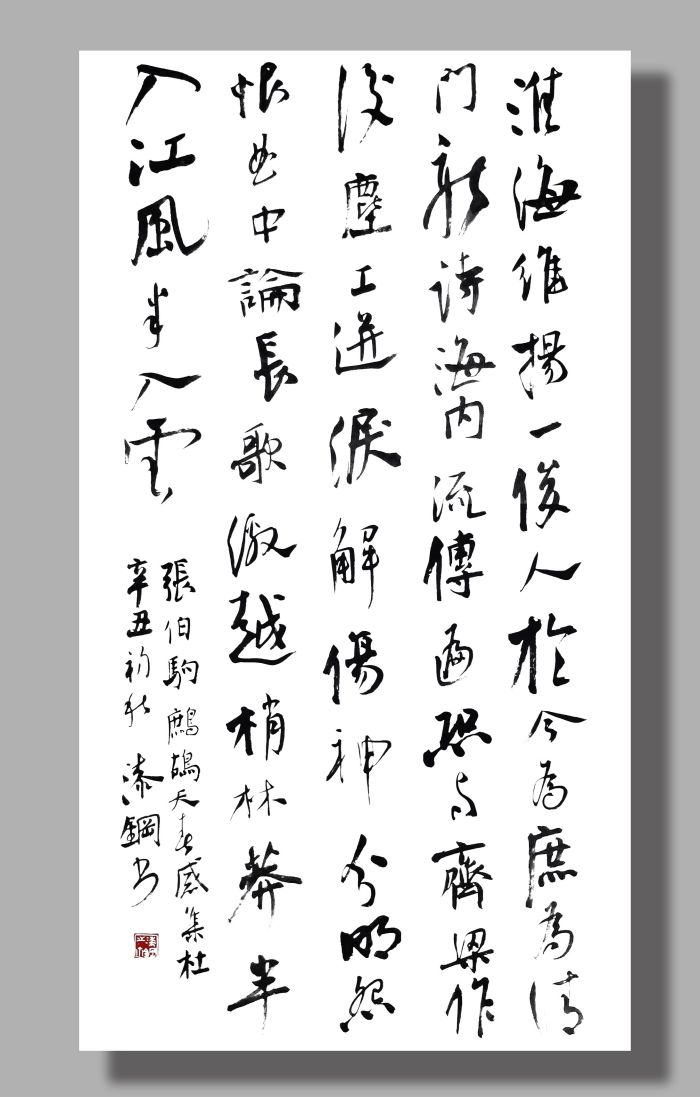 淮海維揚一俊人於今為庶為清
門新詩海內流傳遍恐与齊梁作
後塵工迸淚解傷神分明怨
恨曲中論長歌激越梢林莽半
入江風半入雲
張伯駒鷓鴣天春感集杜
辛丑初秋漆鋼书